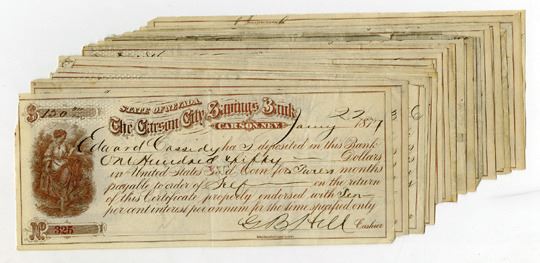 $150
STATE OF NEVADA.
The Carson City Savings Bank
CARSON, NEV. 22 187
Edward Cassidy has deposited in this Bank
One Hundred & fifty Dollars
in United States Gold Coin for Three months
payable to order of Self on the return
of this Certificate properly endorsed with Ten
per cent interest per annum for the time specified only
No. 325 G B Hill Cashier